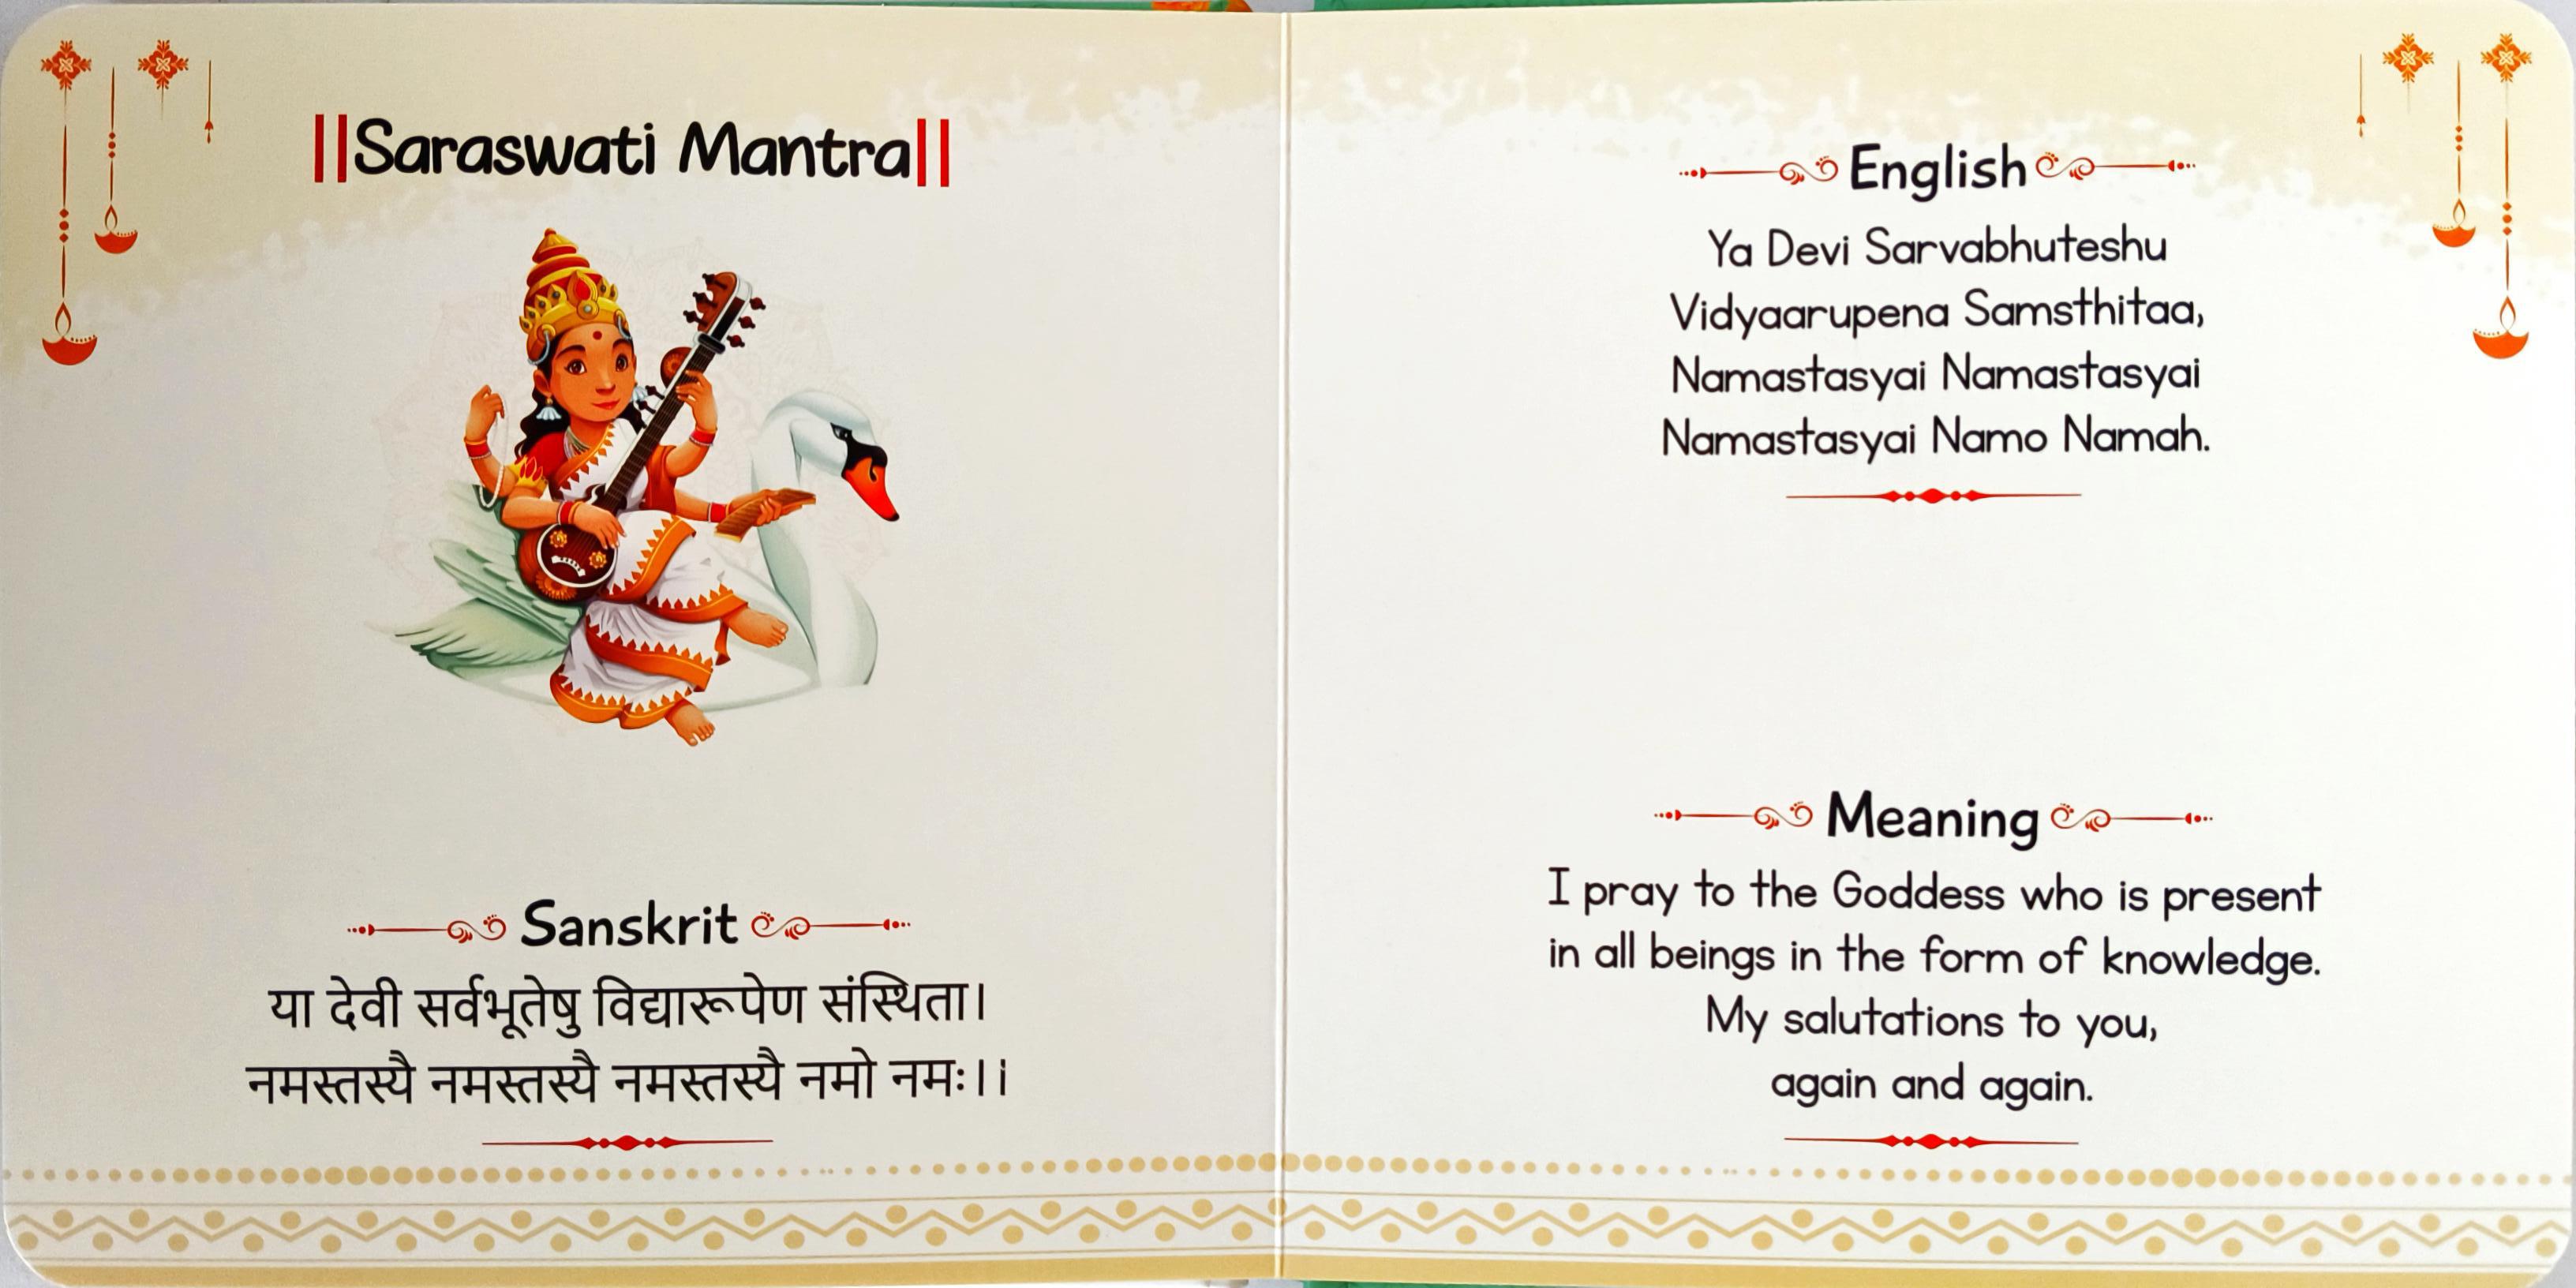 ||Saraswati Mantra||
Sanskrit
या देवी सर्वभूतेषु विद्यारूपेण संस्थिता।
नमस्तस्यै नमस्तस्यै नमस्तस्यै नमो नमः।i
English
Ya Devi Sarvabhuteshu
Vidyaarupena Samsthitaa,
Namastasyai Namastasyai
Namastasyai Namo Namah.
Meaning
I pray to the Goddess who is present
in all beings in the form of knowledge.
My salutations to you,
again and again.